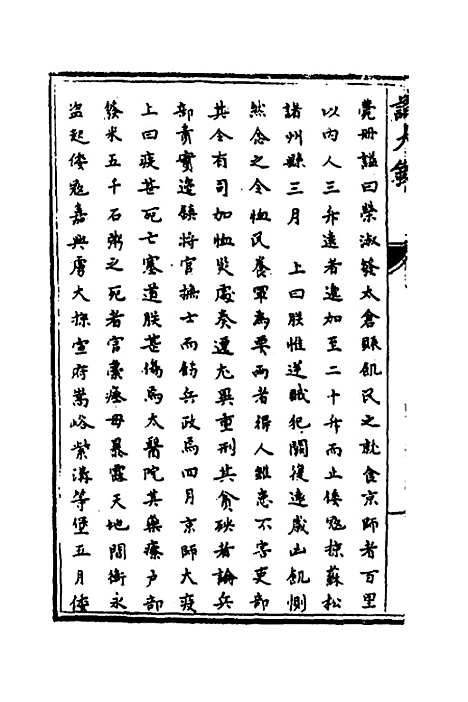 薨册謚曰榮淑發太倉賑飢民之就食京師者百里
以内人三斗遠者遞加至二十斗而止倭寇掠蘇松
諸州縣三月　上曰朕惟逆賊犯關復遠戚山飢惻
然念之令恤民養軍為要而者得人雖患不害吏部
其令有司加恤災處奏遷尤異重刑其貪殃者論兵
部責實邊鎮將官撫士而飭兵政焉四月京師大疫
上曰疫甚死亡塞道朕甚傷焉太醫院其藥療户部
發米五千石粥之死者官裹瘞毋暴露天地間衛永
盜起倭寇嘉興虜大掠宣府嵩峪紫溝等堡五月倭